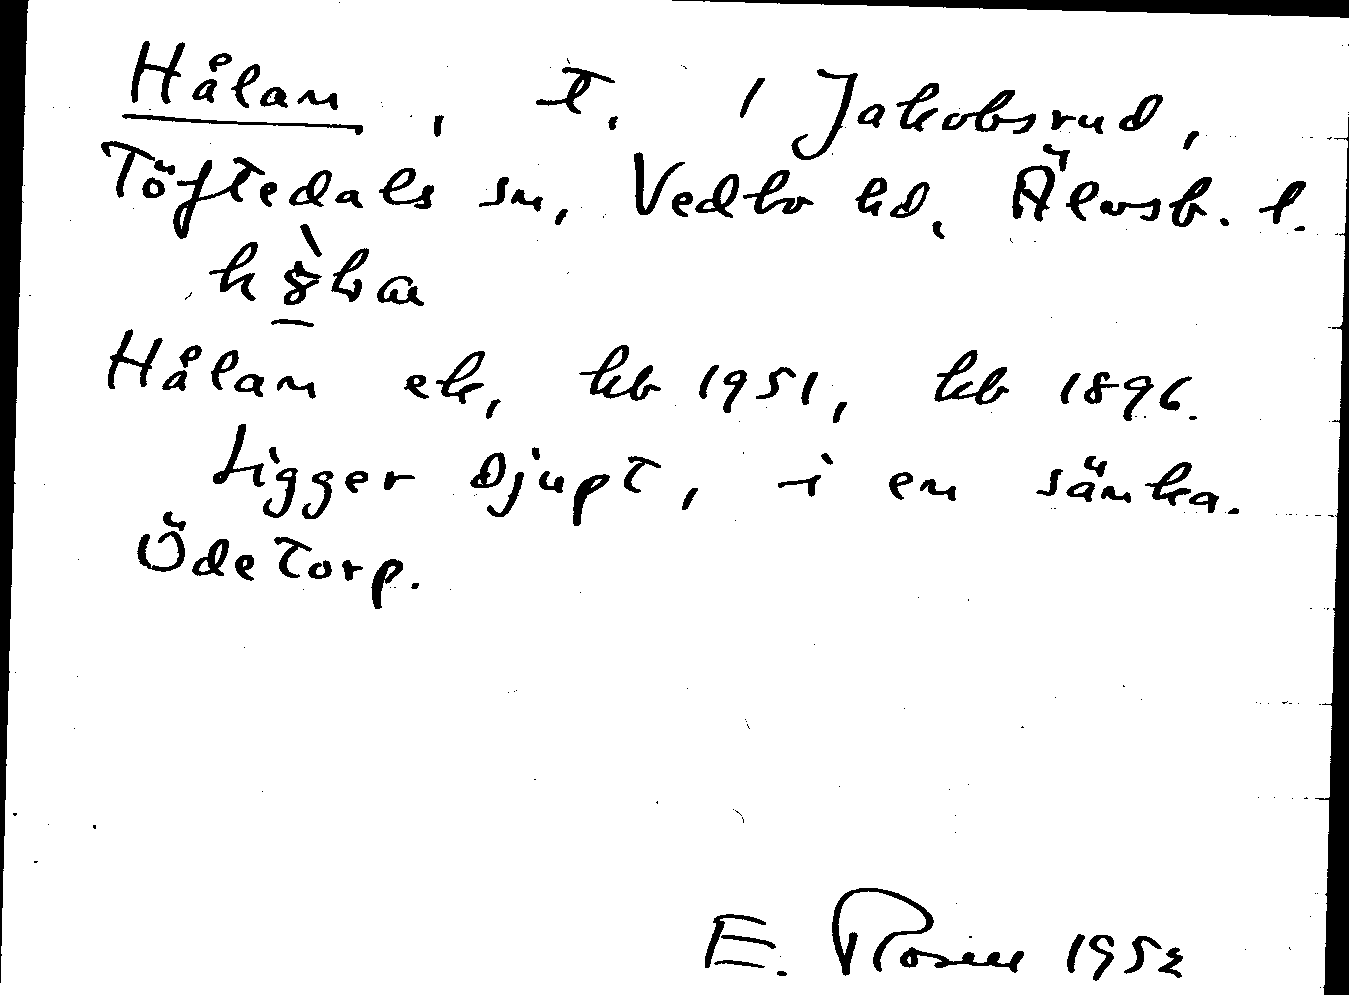 Hålan, t. / Jakobsrud,
Töftedals sn, Vedbo hd, Älvsb. l.
Hålan ek, kb 1951, kb 1896.
Ligger djupt, i en sänka.
Öde torp.
E. Rosell 1952